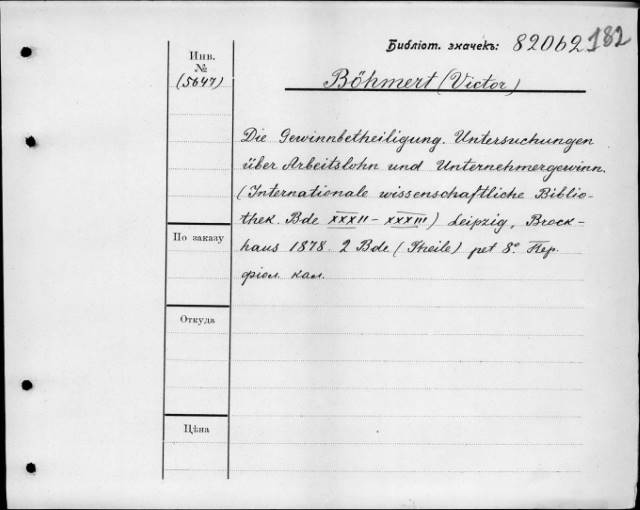 Библіот. значекъ: 82062 182
Инв.
№
(5647)
Böhmert (Victor)
Die Gewinnbetheiligung. Untersuchungen
über Arbeitslohn und Unternehmergewinn.
(Internationale wissenschaftliche Biblio-
thek. Bde XXXII - XXXIII) Leipzig, Brock-
haus 1878. 2 Bde (Theile) pet 8º. Пер.
фіол. кал.
По заказу
Откуда
Цѣна